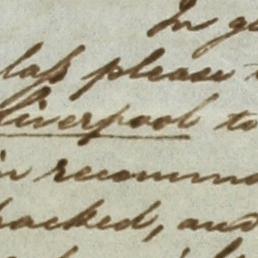 In ge
lass please t
Liverpool to
in recomme
packed, and